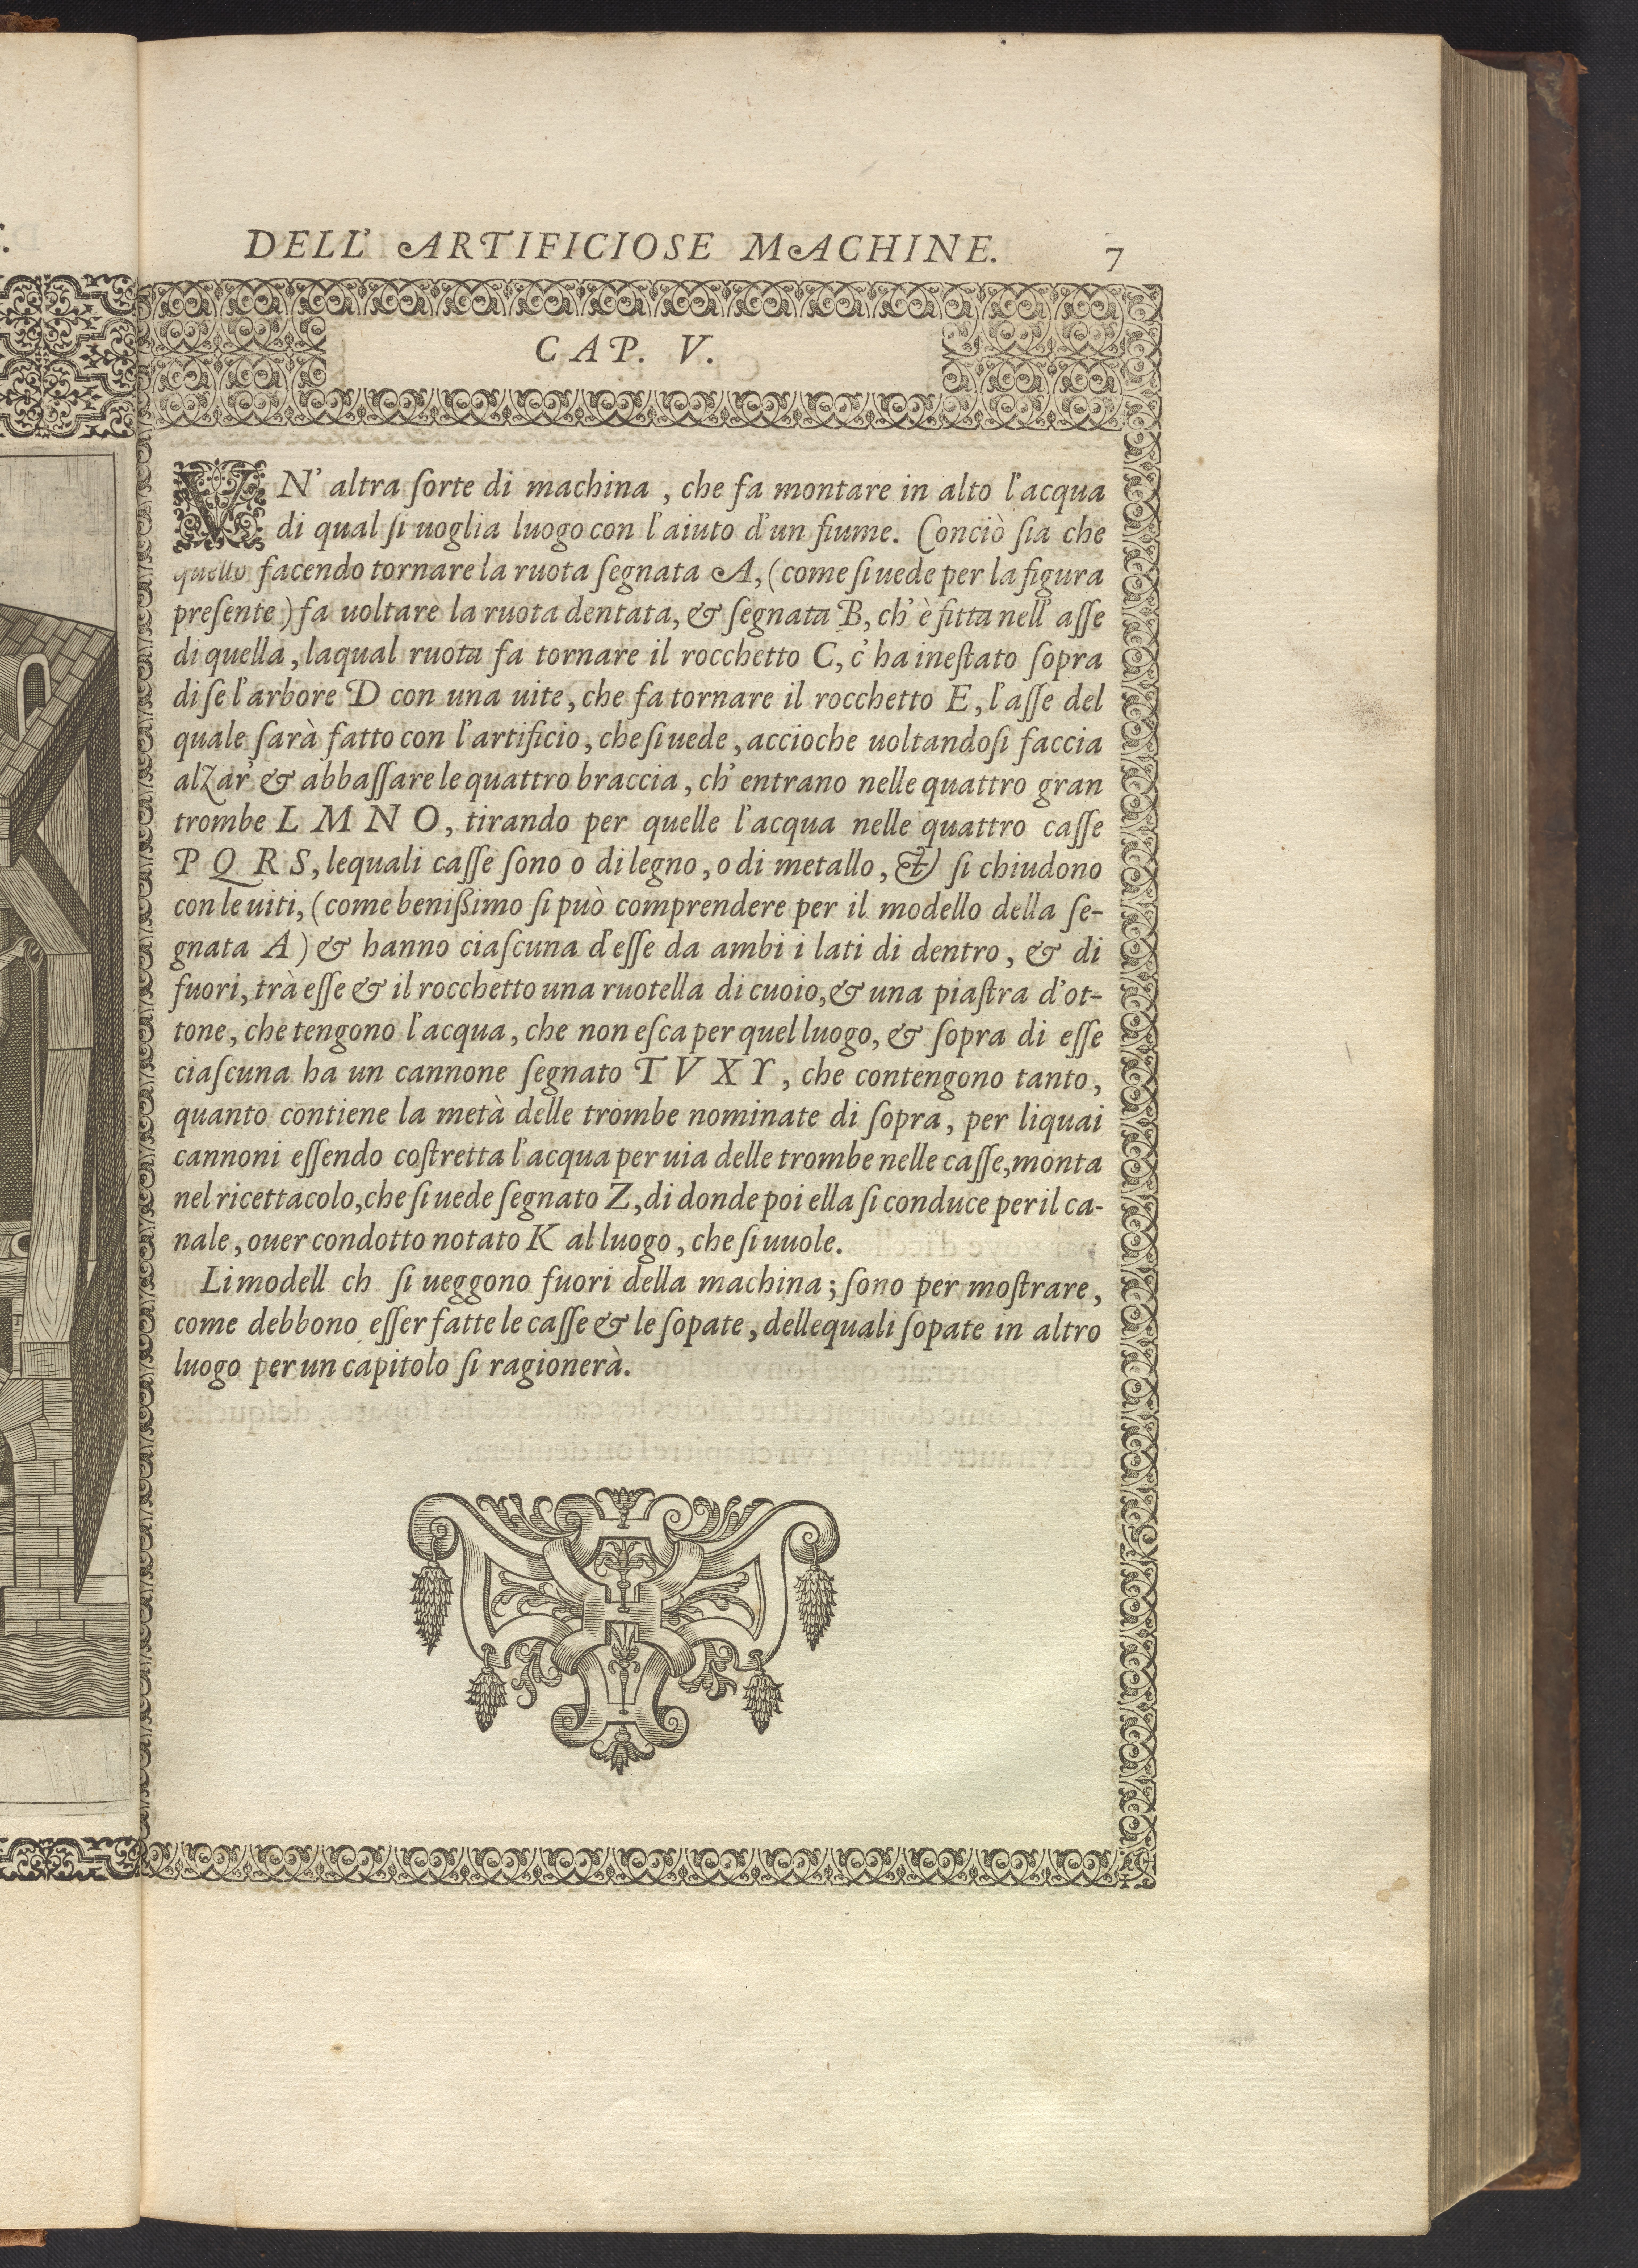 DELL' ARTIFICIOSE MACHINE. 7
CAP. V.
VN' altra ſorte di machina, che fa montare in alto l'acqua
di qual ſi uoglia luogo con l'aiuto d'un fiume. Conciò ſia che
quello facendo tornare la ruota ſegnata A, (come ſi uede per la figura
preſente) fa uoltare la ruota dentata, & ſegnata B, ch' è fitta nell' aſſe
di quella, laqual ruota fa tornare il rocchetto C, c' ha ineſtato ſopra
di ſe l'arbore D con una uite, che fa tornare il rocchetto E, l'aſſe del
quale ſarà fatto con l'artificio, che ſi uede, accioche uoltandoſi faccia
alzar' & abbaſſare le quattro braccia, ch' entrano nelle quattro gran
trombe L M N O, tirando per quelle l'acqua nelle quattro caſſe
P Q R S, lequali caſſe ſono o di legno, o di metallo, & ſi chiudono
con le uiti, (come benißimo ſi può comprendere per il modello della ſe-
gnata A) & hanno ciaſcuna d'eſſe da ambi i lati di dentro, & di
fuori, trà eſſe & il rocchetto una ruotella di cuoio, & una piaſtra d'ot-
tone, che tengono l'acqua, che non eſca per quel luogo, & ſopra di eſſe
ciaſcuna ha un cannone ſegnato T V X Y, che contengono tanto,
quanto contiene la metà delle trombe nominate di ſopra, per liquai
cannoni eſſendo coſtretta l'acqua per uia delle trombe nelle caſſe, monta
nel ricettacolo, che ſi uede ſegnato Z, di donde poi ella ſi conduce per il ca-
nale, ouer condotto notato K al luogo, che ſi uuole.
Li modell ch ſi ueggono fuori della machina; ſono per moſtrare,
come debbono eſſer fatte le caſſe & le ſopate, dellequali ſopate in altro
luogo per un capitolo ſi ragionerà.